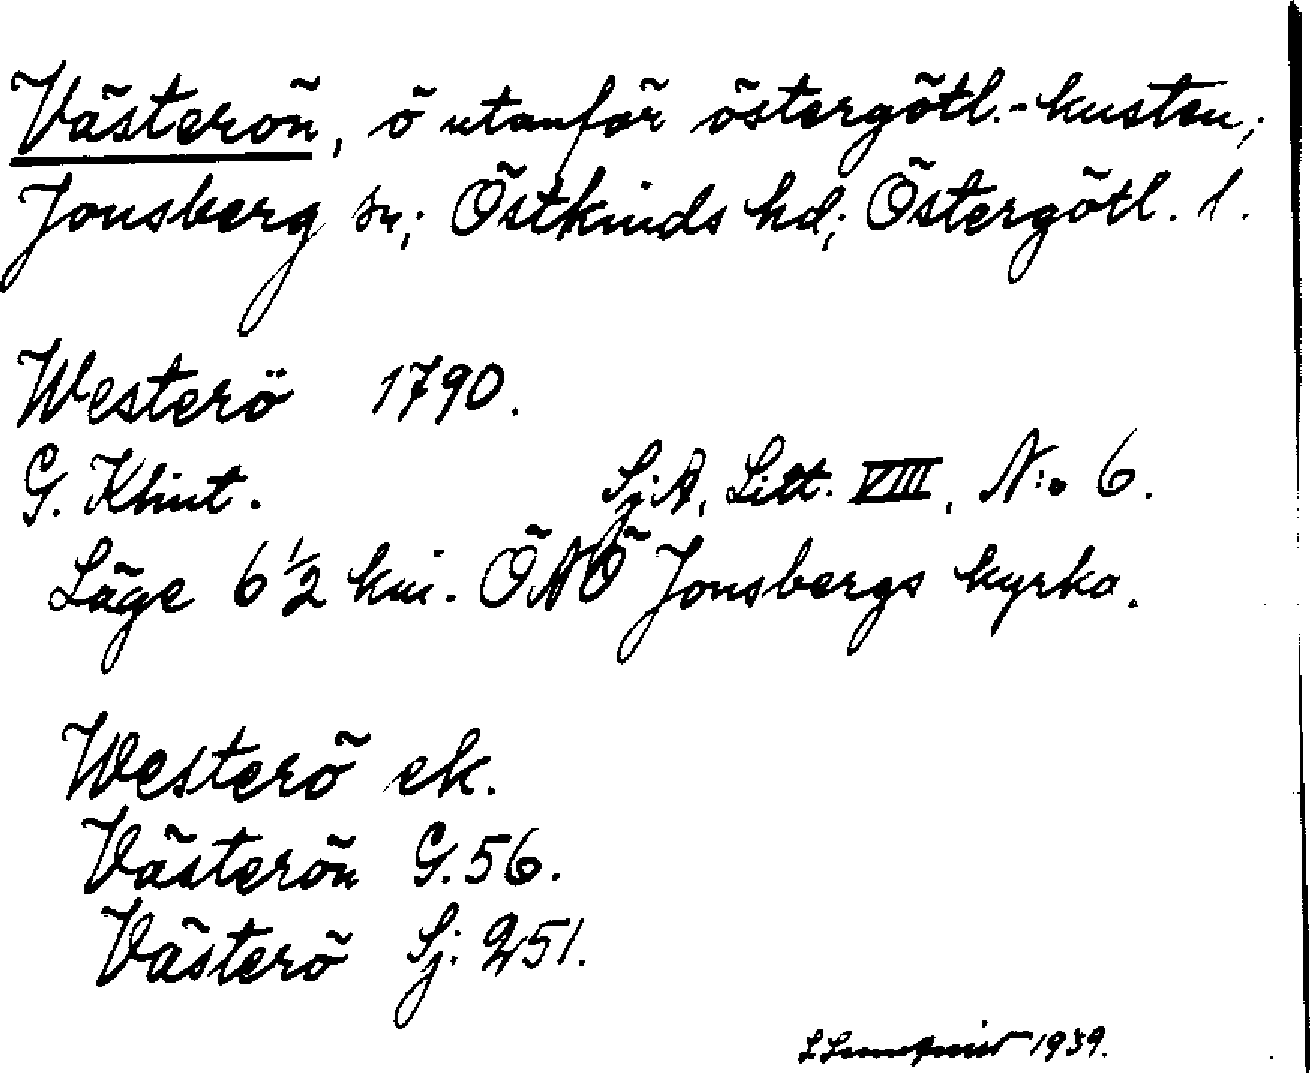 Västerön, ö utanför östergötl.-kusten;
Jonsberg sn; Östkinds hd; Östergötl. l.
Westerö 1790.
G. Klint. Sj.A, Litt. VIII, N:o 6.
Läge 6 1/2 km. ÖNÖ Jonsbergs kyrka.
Westerö ek.
Västerön G. 56.
Västerö Sj. 251.
1939.